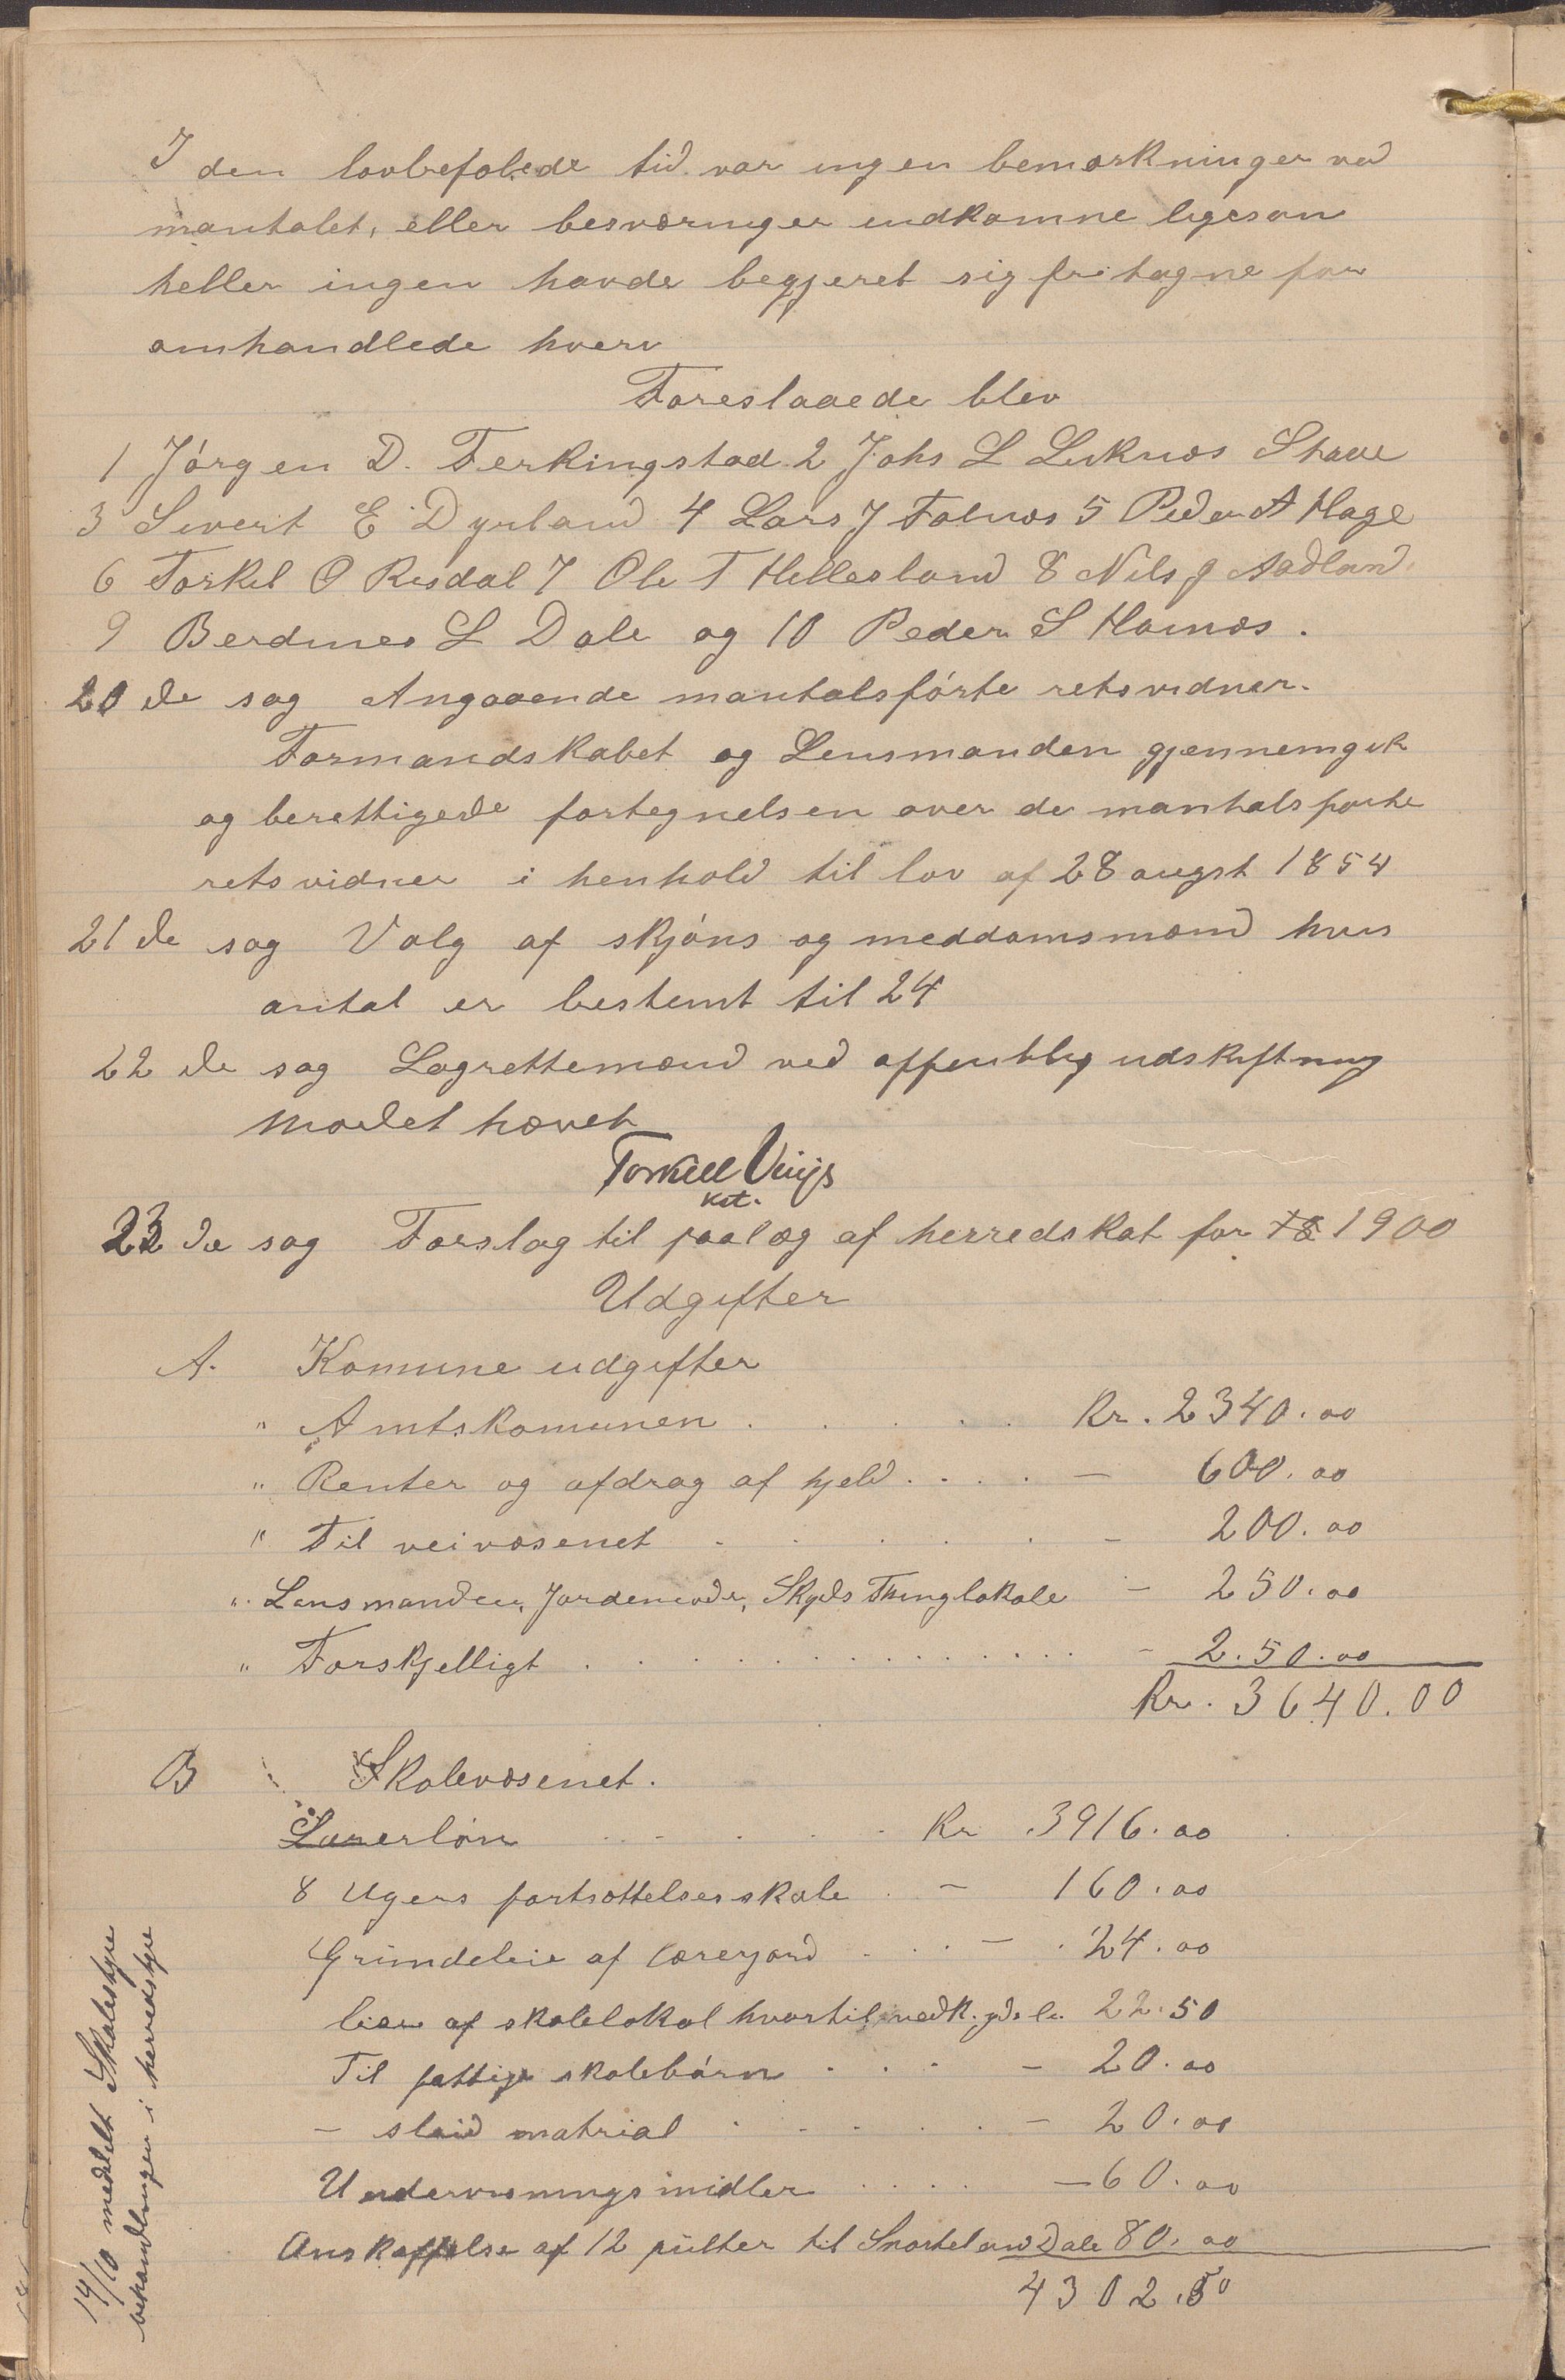 I den lovbefolede tid var ingen bemærkninger ved
mantalet, eller besværinger indkomne ligesom
heller ingen havde begjeret sig fritagne for
omhandlede hverv
Foreslaaede blev
1 Jórgen D. Ferkingstad 2 Johs L Liknæs Stave
3 Sivert E Dyrland 4 Lars J Falnæs 5 Peder A Hage
6 Torkel O Risdal 7 Ole T Hellesland 8 Nils J Aadland
9 Berdines L Dale og 10 Peder S Hamnæs.
20 de sag Angaaende mantalsfórte retsvidner.
Formandskabet og Lensmanden gjennemgik
og berettigede fortegnelsen over de mantalsforte
retsvidner i henhold til lov af 28 augst 1854
21 de sag Valg af skjóns og meddomsmænd hvis
antal er bestemt til 24
22 de sag Lagrettemænd ved offentlig udskiftning
Modet hævet
Torkell Viigs
Kst.
23 de sag Forslag til paalæg af herredskat for 18 1900
Udgifter
A. Komune udgifter
" Amtskomunen . . . . . Kr. 2340.00
" Renter og afdrag af gjeld . . . . — 600.00
" Til veivæsenet . . . . . — 200.00
" Lensmanden, Jordemode, Skyds Thinglokale — 250.00
" Forskjelligt . . . . . . . . . . — 2.50.00
Kr. 3640.00
B Skolevæsenet.
Lærerlón . . . . . Kr 3916.00
8 Ugers fortsættelsesskole . — 160.00
Grundeleie af lærerjord . . . — 24.00
leie af skolelokal hvortil medk. yds le. 22.50
Til fattige skolebórn . . . — 20.00
— slöid matrial . . . . — 20.00
Undervisningsmidler . . . . — 60.00
Anskaffelse af 12 pülter til Snorteland Dale 80.00
4302.50
14/10 medelt Skolestyre
behandlingen i herredstyre